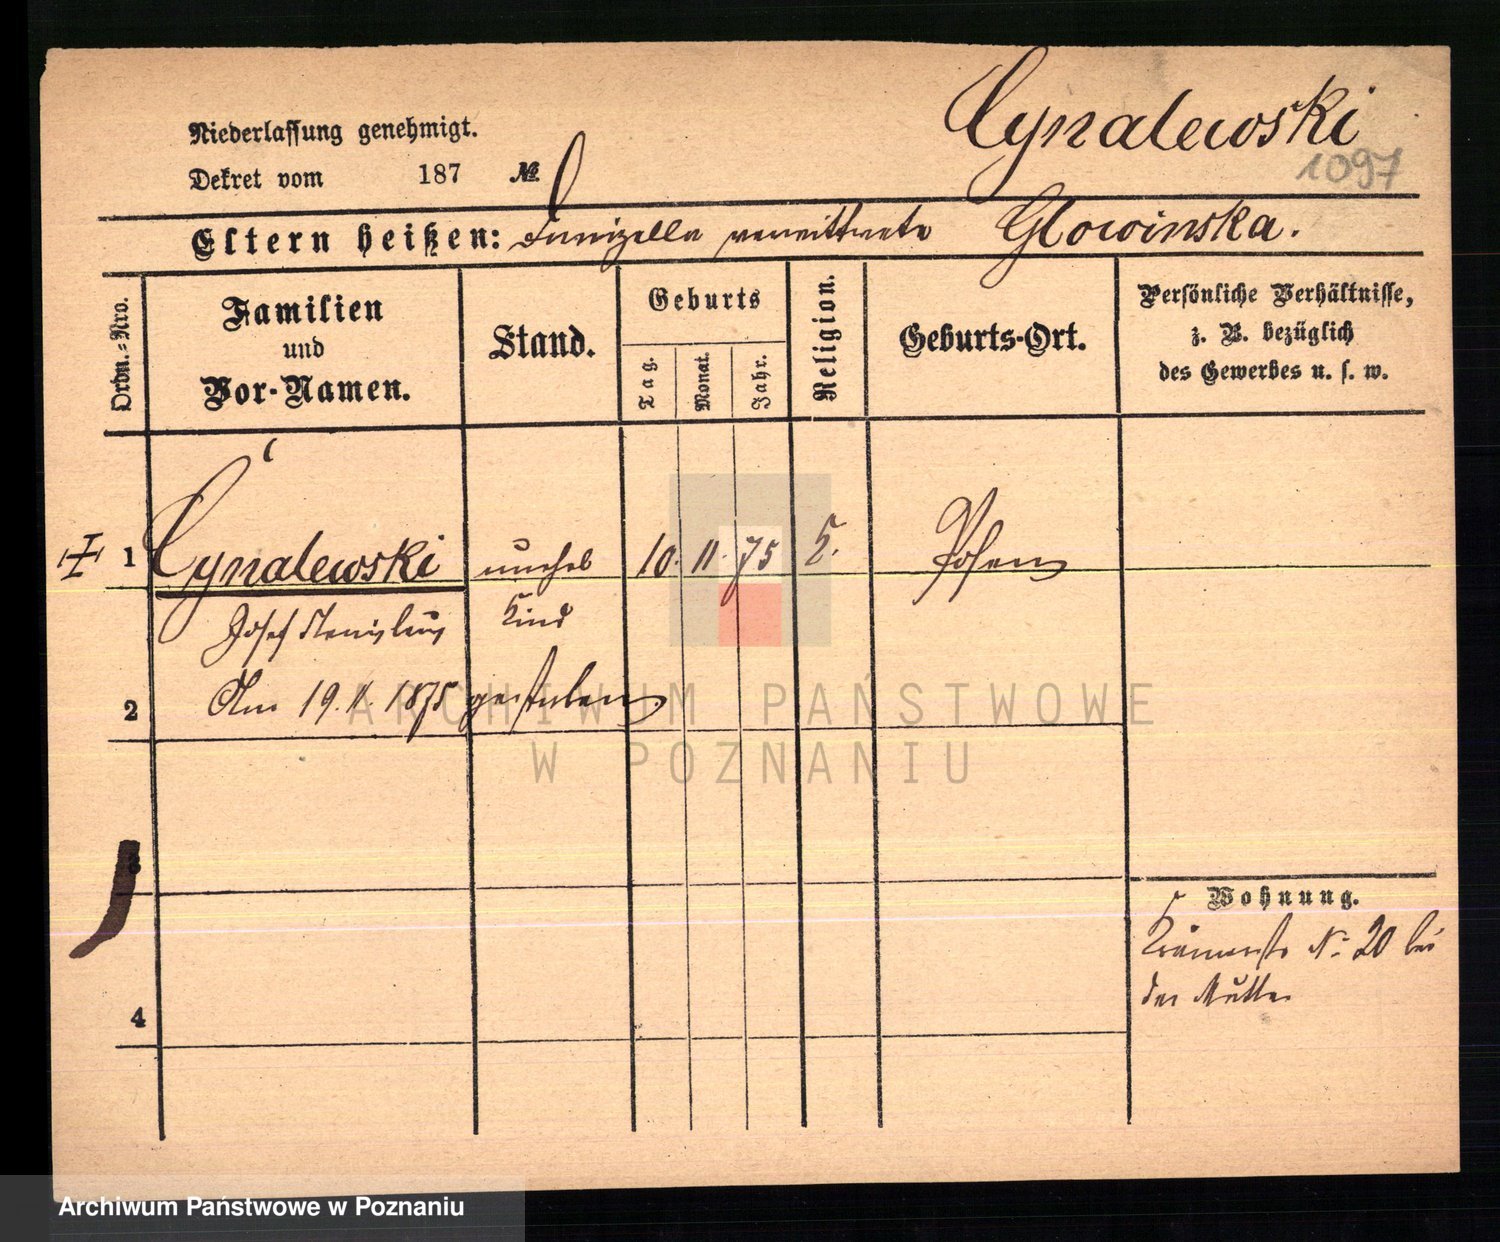 Cynalewski
1097
Niederlassung genehmigt.
Dekret vom 187 №
Eltern heißen: verwittwete Glowinska.
Ordn.-Nro.
Familien
und
Vor-Namen.
Stand.
Geburts
Tag.
Monat.
Jahr.
Religion.
Geburts-Ort.
Persönliche Verhältnisse,
z. B. bezüglich
des Gewerbes u. s. w.
1 Cynalewski unehel 10. 11. 75 k. Posen
Josef Stanislaus Kind
2 Am 19. 11. 1875 gestorben.
3
4
Wohnung.
Krämerstr N: 20 bei
der Mutter
ARCHIWUM PAŃSTWOWE
W POZNANIU
Archiwum Państwowe w Poznaniu